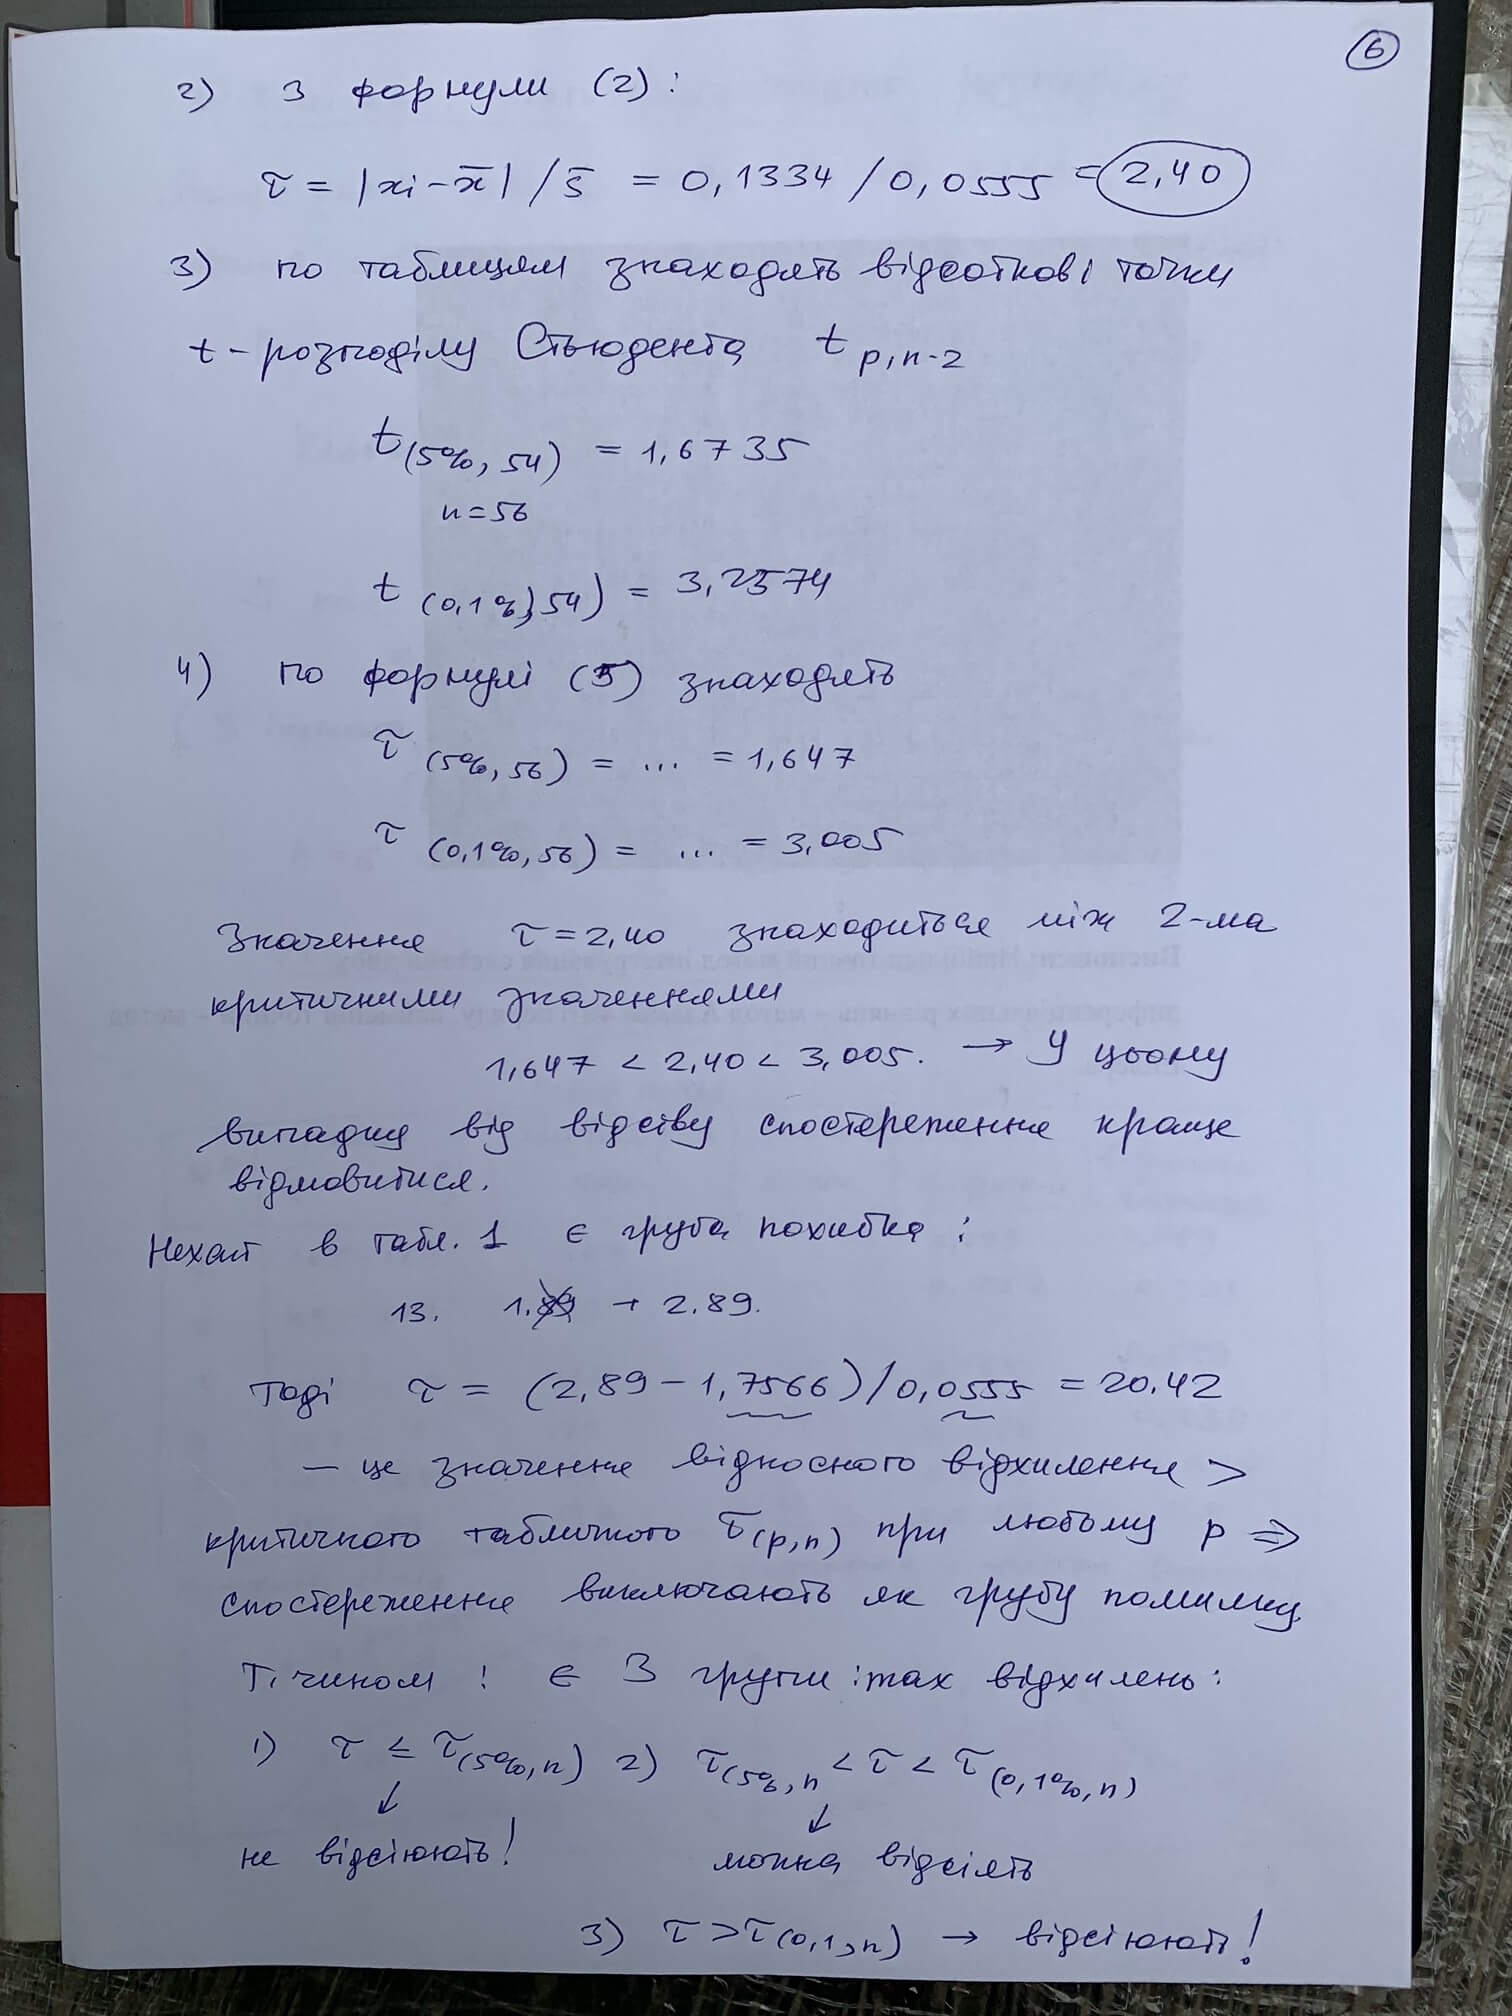 6
2) З формули (2):
τ = |xi – x̄| / s̄ = 0,1334 / 0,0555 = 2,40
3) по таблицям знаходять відсоткові точки
t – розподілу Стьюдента t p, n-2
t (5%, 54) = 1,6735
n = 56
t (0,1%, 54) = 3,2574
4) по формулі (5) знаходять
τ (5%, 56) = ... = 1,647
τ (0,1%, 56) = ... = 3,005
Значення τ = 2,40 знаходиться між 2-ма
критичними значеннями
1,647 < 2,40 < 3,005. → У цьому
випадку від відсіву спостереження краще
відмовитися.
Нехай в табл. 1 є груба похибка:
13. 1.89 → 2.89.
Тоді τ = (2,89 – 1,7566) / 0,0555 = 20.42
– це значення відносного відхилення >
критичного табличного τ(p,n) при любому p ⇒
спостереження виключають як грубу помилку
Т. чином: є 3 групи max відхилень:
1) τ ≤ τ(5%, n) 2) τ(5%, n < τ < τ (0,1%, n)
↓ ↓
не відсіюють! можна відсіять
3) τ > τ(0,1, n) → відсіюють!